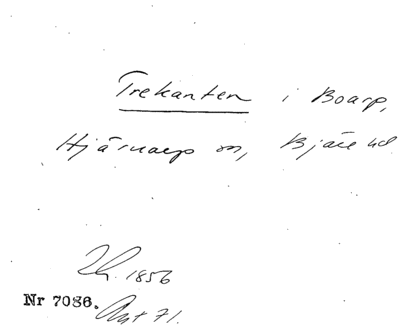 Trekanten i Boarp,
Hjärnarp sn, Bjäre hd
Lh. 1856
Nr 7086. Akt 71.